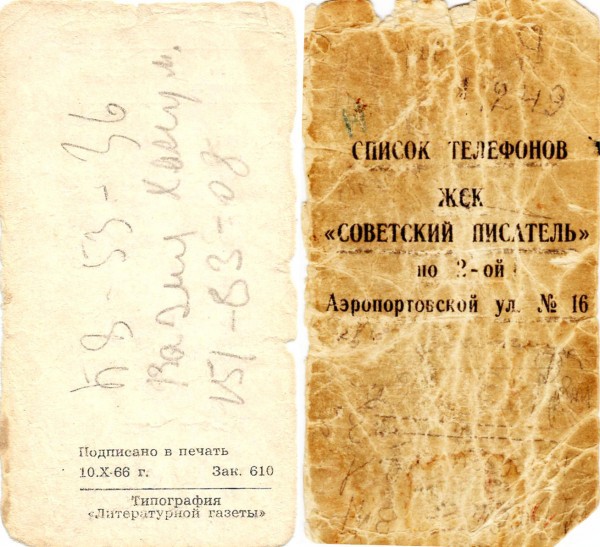 53-36
151-83-08
Подписано в печать
10.X-66 г. Зак. 610
Типография
«Литературной газеты»
249
СПИСОК ТЕЛЕФОНОВ
ЖСК
«СОВЕТСКИЙ ПИСАТЕЛЬ»
по 2-ой
Аэропортовской ул. № 16